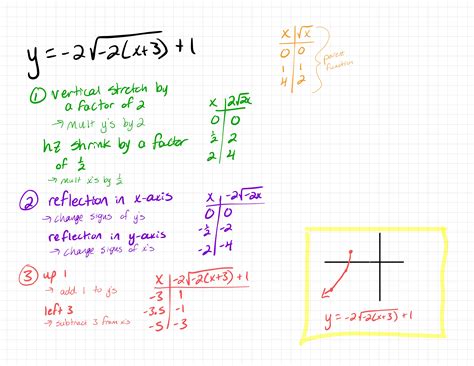 y = -2√-2(x+3) + 1
x | √x
0 | 0
1 | 1
4 | 2
parent function
① vertical stretch by
a factor of 2
→ mult y's by 2
hz shrink by a factor
of 1/2
→ mult x's by 1/2
x | 2√2x
0 | 0
1/2 | 2
2 | 4
② reflection in x-axis
→ change signs of y's
reflection in y-axis
→ change signs of x's
x | -2√-2x
0 | 0
-1/2 | -2
-2 | -4
③ up 1
→ add 1 to y's
left 3
→ subtract 3 from x's
x | -2√-2(x+3) + 1
-3 | 1
-3.5 | -1
-5 | -3
y = -2√-2(x+3) + 1